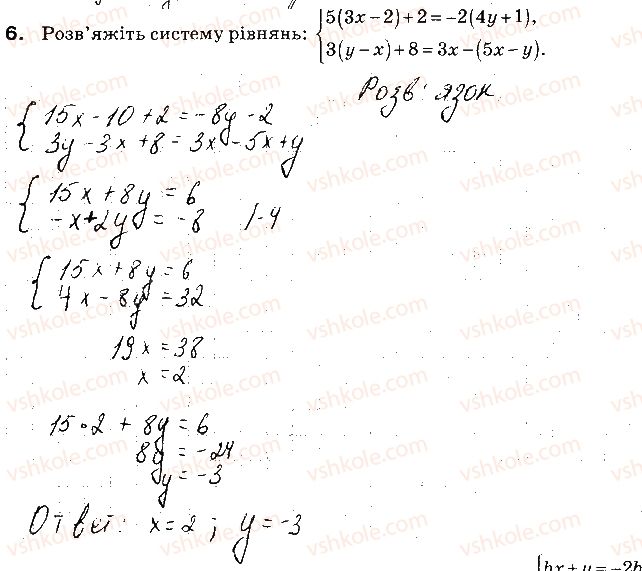 6. Розв'яжіть систему рівнянь: { 5(3x−2)+2=−2(4y+1),
3(y−x)+8=3x−(5x−y).
Розв'язок
{ 15x − 10 + 2 = −8y − 2
3y − 3x + 8 = 3x − 5x + y
{ 15x + 8y = 6
−x + 2y = −8 /·−4
{ 15x + 8y = 6
4x − 8y = 32
19x = 38
x = 2
15·2 + 8y = 6
8y = −24
y = −3
Ответ: x = 2 ; y = −3
{ bx + y = −2b
vshkole.com